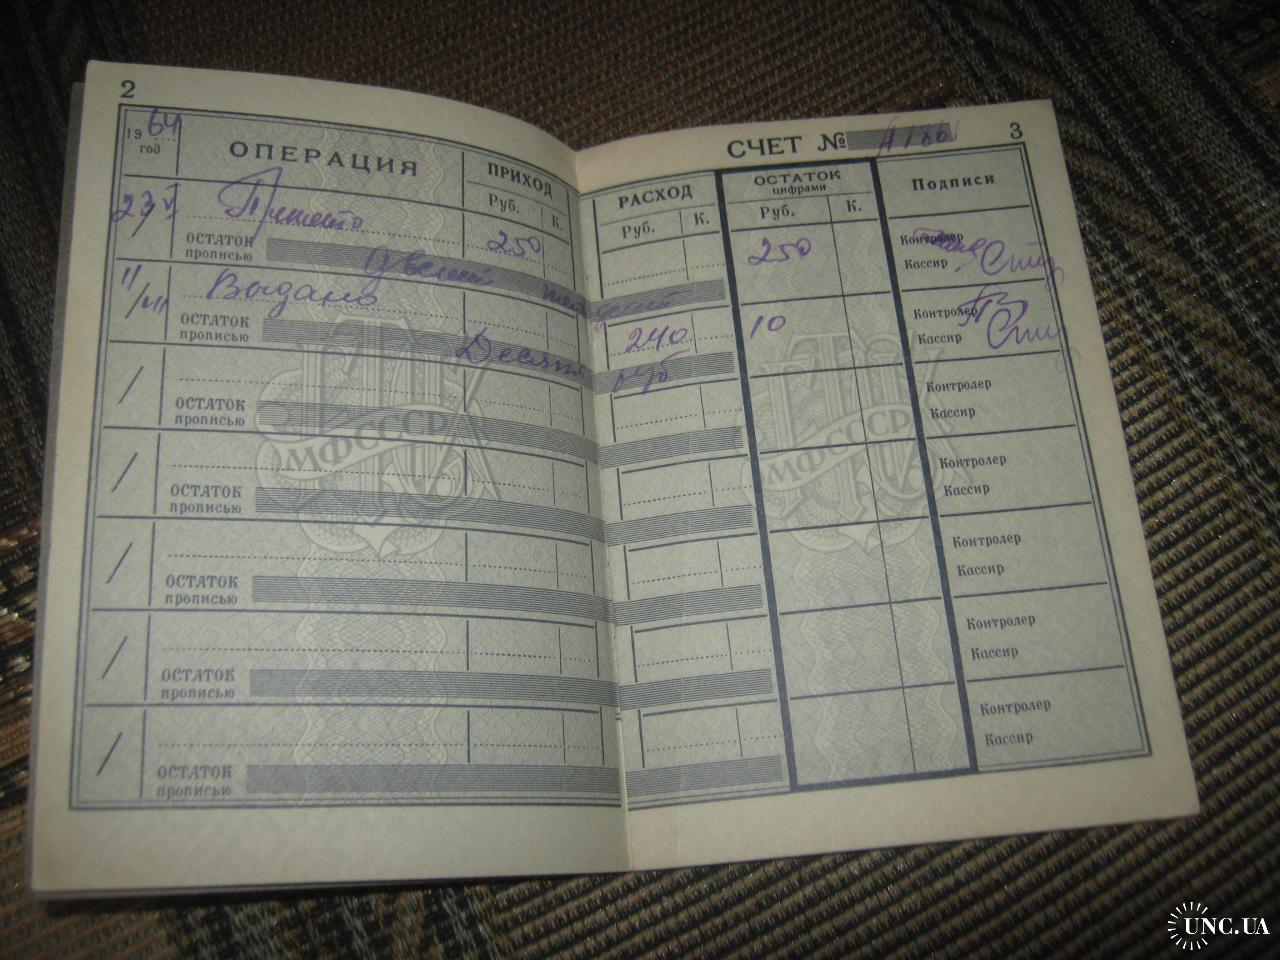 2
1964
год
ОПЕРАЦИЯ
ПРИХОД
Руб. К.
23/V
Принято
250
ОСТАТОК
прописью
Двести пятьдесят
11/VII
Выдано
ОСТАТОК
прописью
Десять руб
/
ОСТАТОК
прописью
/
ОСТАТОК
прописью
/
ОСТАТОК
прописью
/
ОСТАТОК
прописью
/
ОСТАТОК
прописью
МФСССР
СЧЕТ №
3
РАСХОД
Руб. К.
ОСТАТОК
цифрами
Руб. К.
Подписи
250
Контролер
Кассир
240
10
Контролер
Кассир
Контролер
Кассир
Контролер
Кассир
Контролер
Кассир
Контролер
Кассир
Контролер
Кассир
МФСССР
UNC.UA